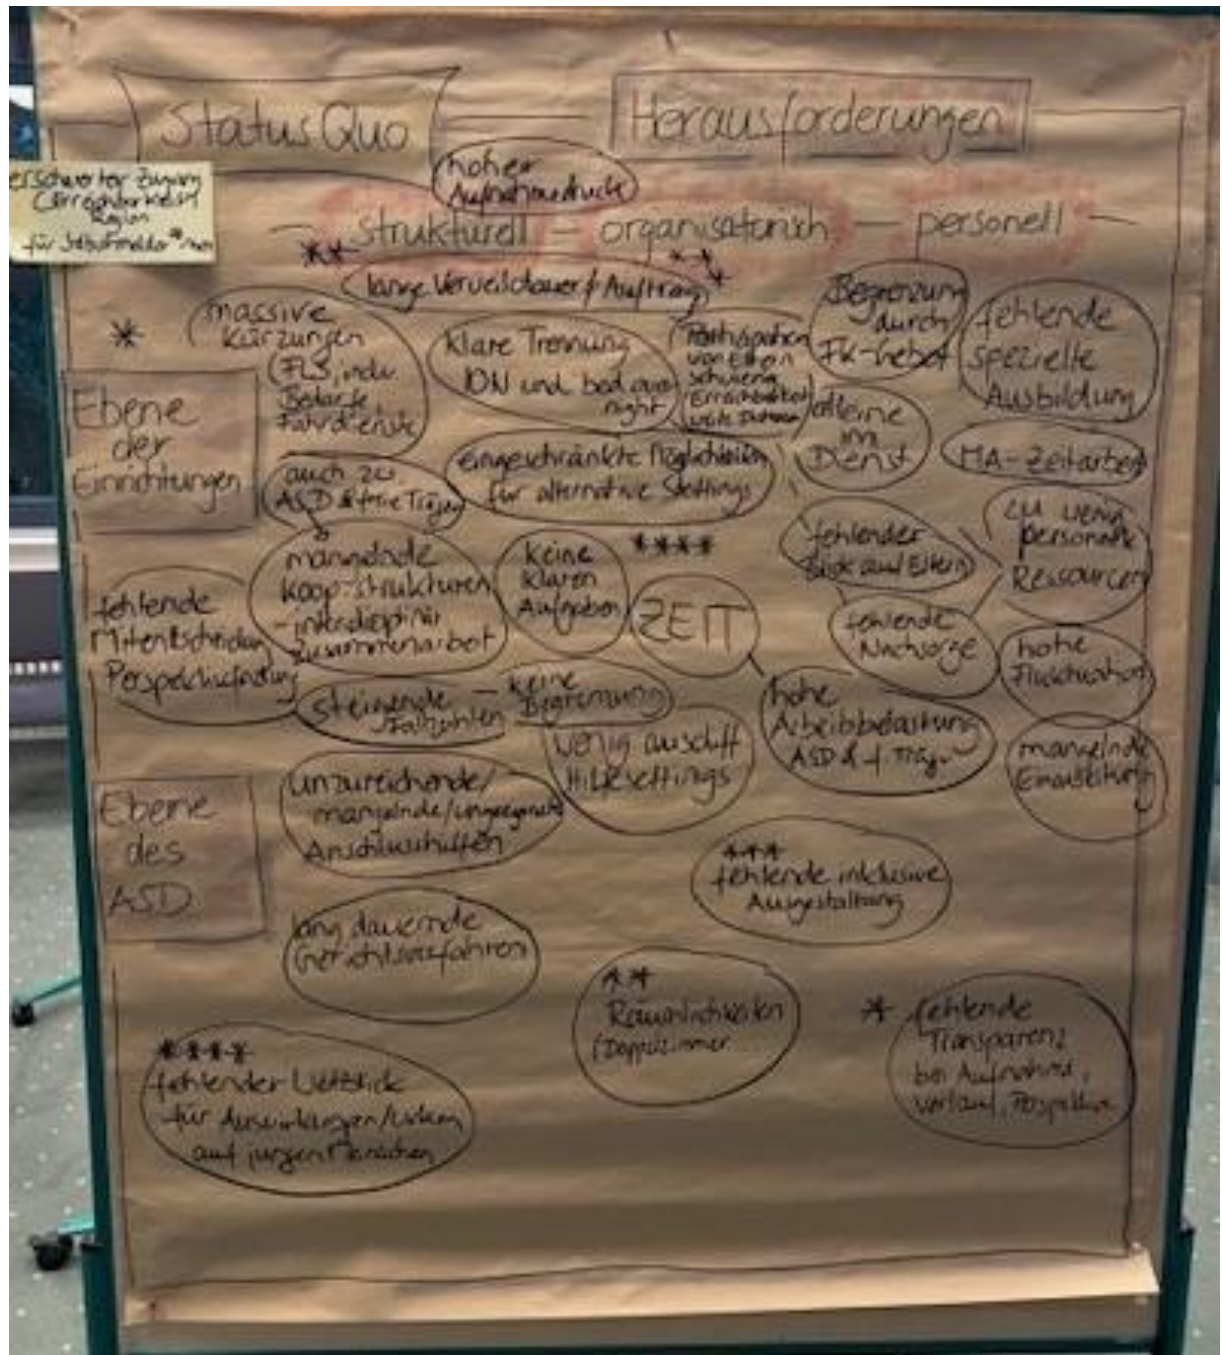 Status Quo
Herausforderungen
hoher
Aufnahmedruck
erschwerter Zugang
Region
für Selbstmelder*innen
strukturell – organisatorisch – personell
**
lange Verweildauer & Auftrag
*
massive
Kürzungen
FLS, indiv.
Bedarfe,
Fahrdienste
klare Trennung
ION und bed over
night
Partizipation
von Eltern
schwierig
Erreichbarkeit
weite Distanzen
Begrenzung
durch
FK-Gebot
fehlende
spezielle
Ausbildung
Ebene
der
Einrichtungen
auch zu
ASD & freie Träger
eingeschränkte Möglichkeiten
für alternative Settings
alleine
im
Dienst
MA-Zeitarbeit
mangelnde
Koop-strukturen
- interdisziplinär
Zusammenarbeit
keine
klaren
Aufgaben
****
ZEIT
fehlender
Blick auf Eltern
zu wenig
personelle
Ressourcen
fehlende
Mitentscheidung
Perspektivfindung
fehlende
Nachsorge
hohe
Fluktuation
steigende
Fallzahlen
keine
Begrenzung
wenig
Hilfesettings
hohe
Arbeitsbelastung
ASD & f. Träger
mangelnde
Einarbeitung
Ebene
des
ASD
unzureichende/
mangelnde/ungeeignete
Anschlusshilfen
***
fehlende inklusive
Ausgestaltung
lang dauernde
Gerichtsverfahren
**
Räumlichkeiten
/Doppelzimmer
*
fehlende
Transparenz
bei Aufnahme,
Verlauf, Perspektive
****
fehlender Weitblick
für Auswirkungen
auf jungen Menschen